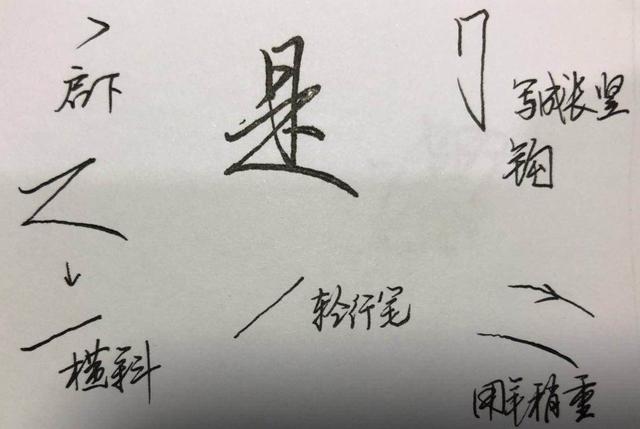 是
启下
写成长竖
钩
轻行笔
横斜
用笔稍重